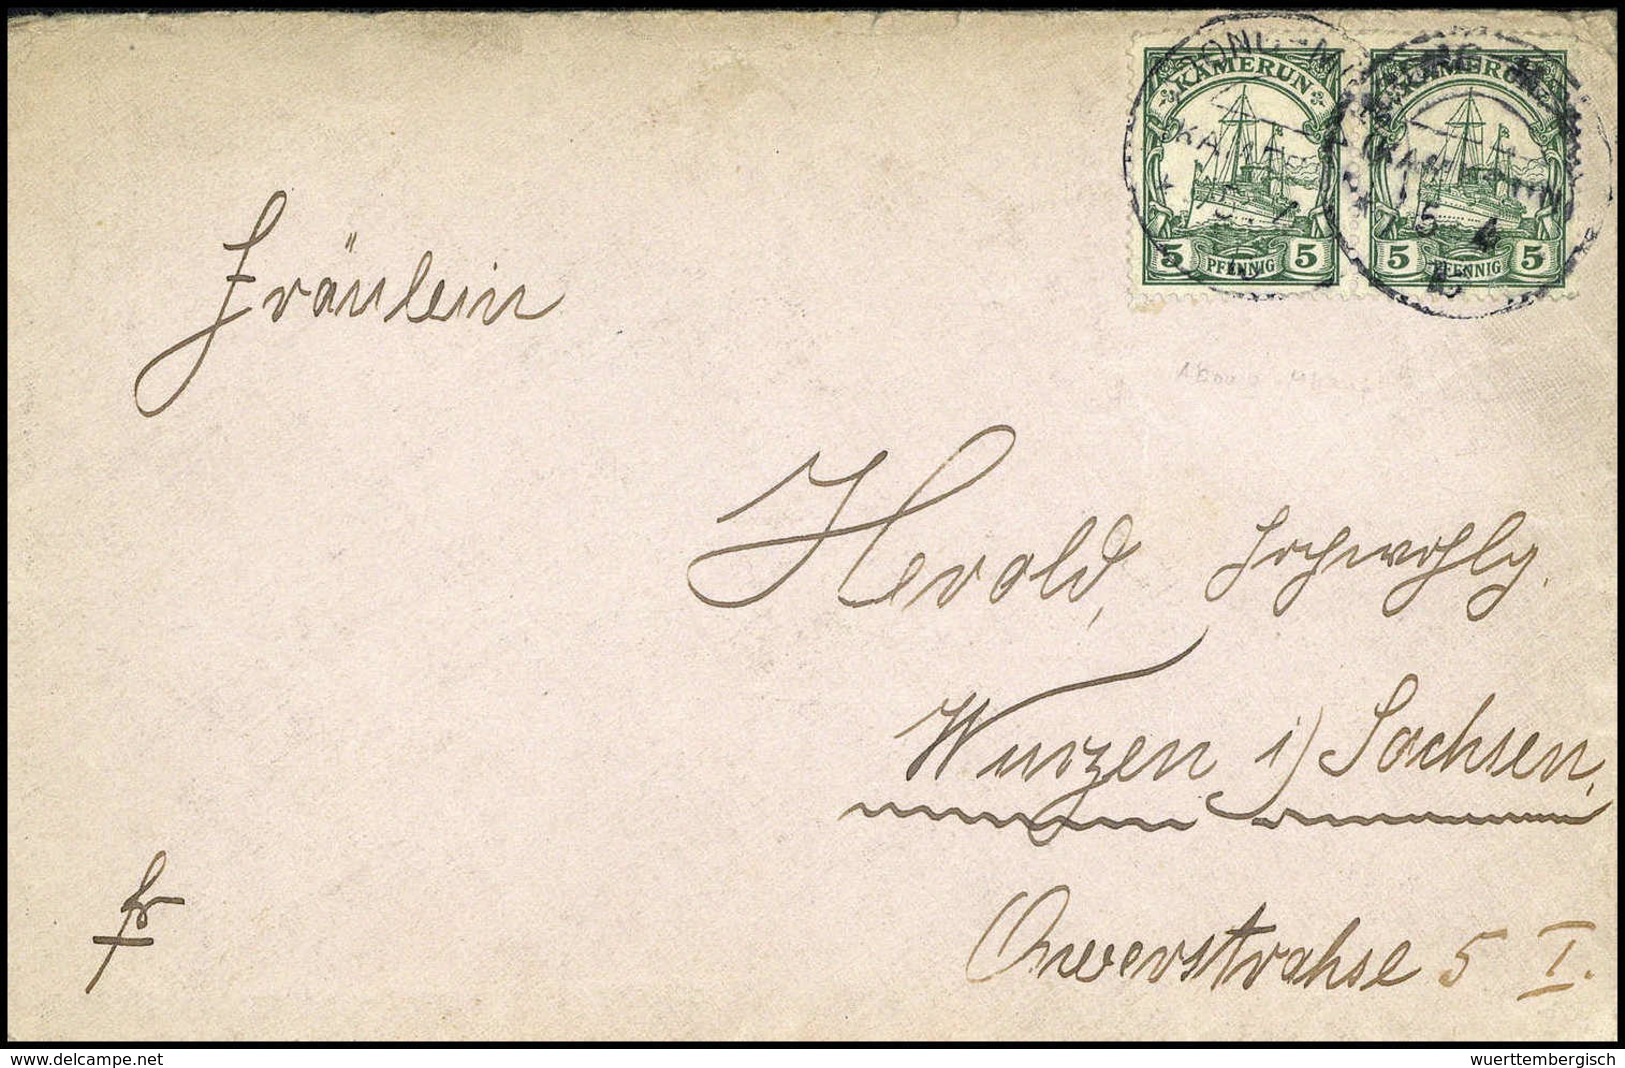 KAMERUN
5 PFENNIG 5
KAMERUN
5 PFENNIG 5
Fräulein
Herold, Hochwohlg.
Wurzen i/ Sachsen,
5 I.
fr
www.delcampe.net
wuerttembergisch